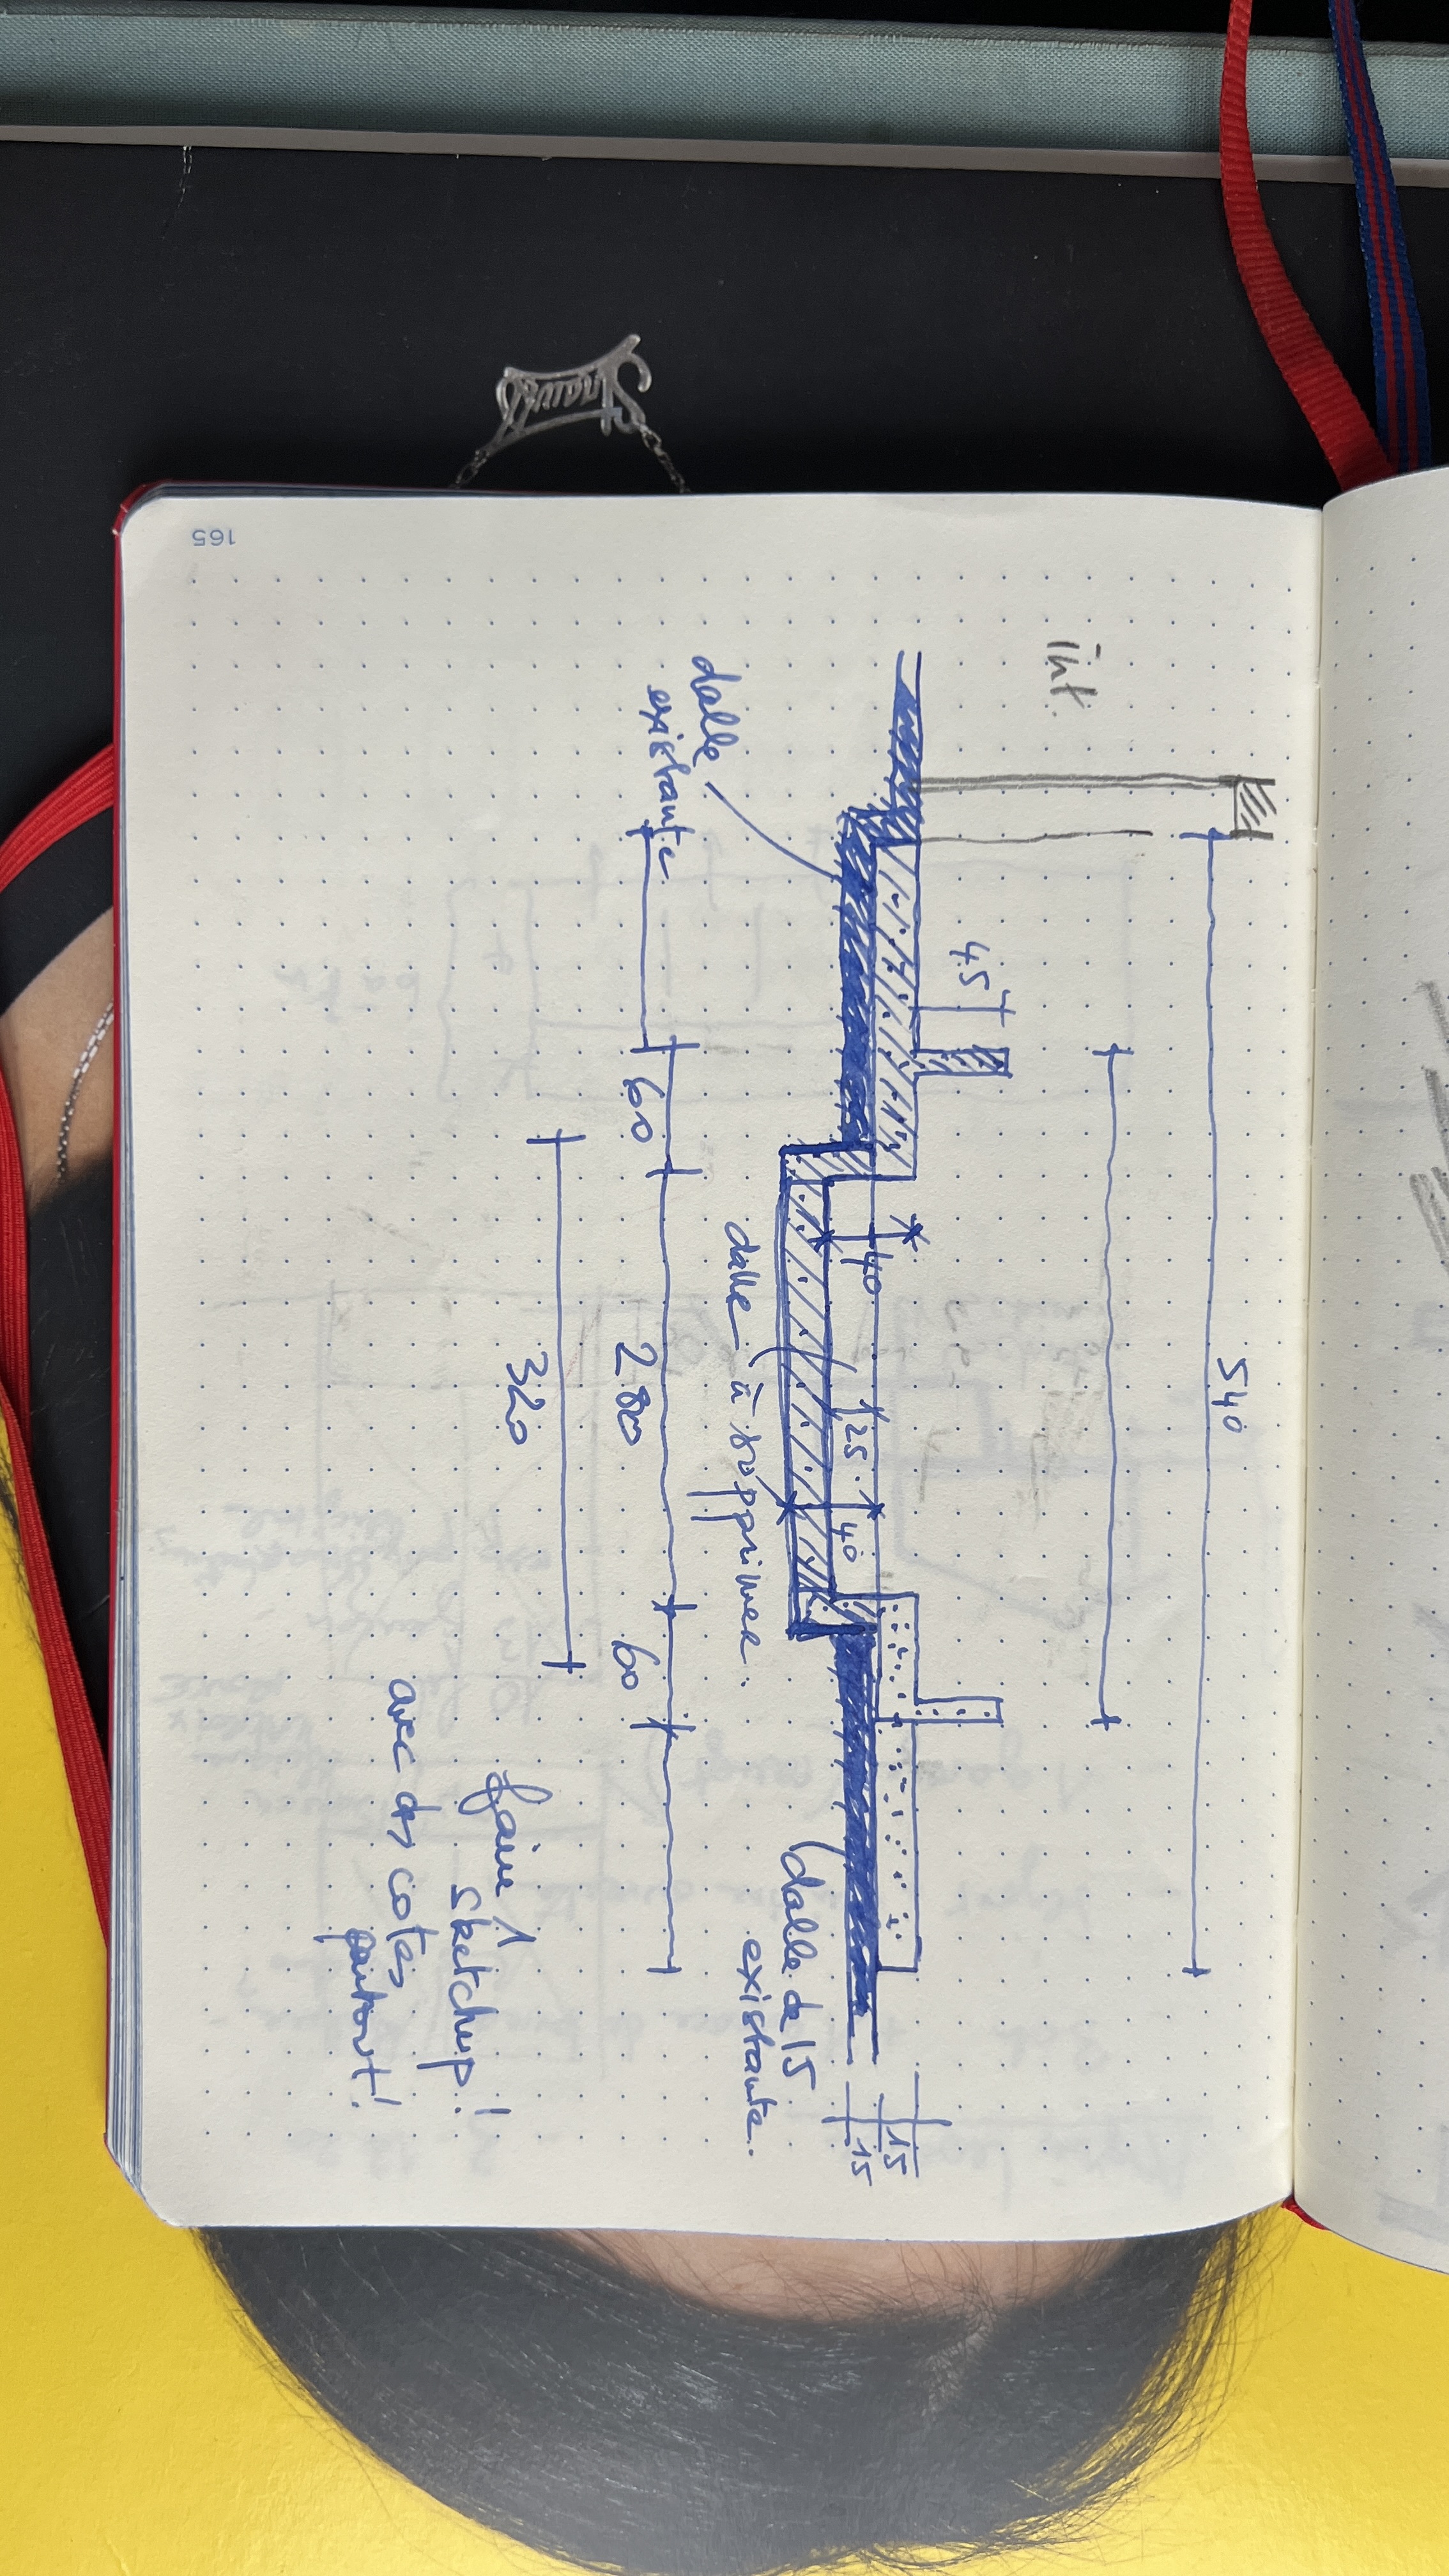 165
int.
540
45
dalle
existante
40
25
40
15
15
dalle à supprimer.
(dalle de 15
existante.
60
280
60
320
faire 1
sketchup!
avec des cotes
partout!